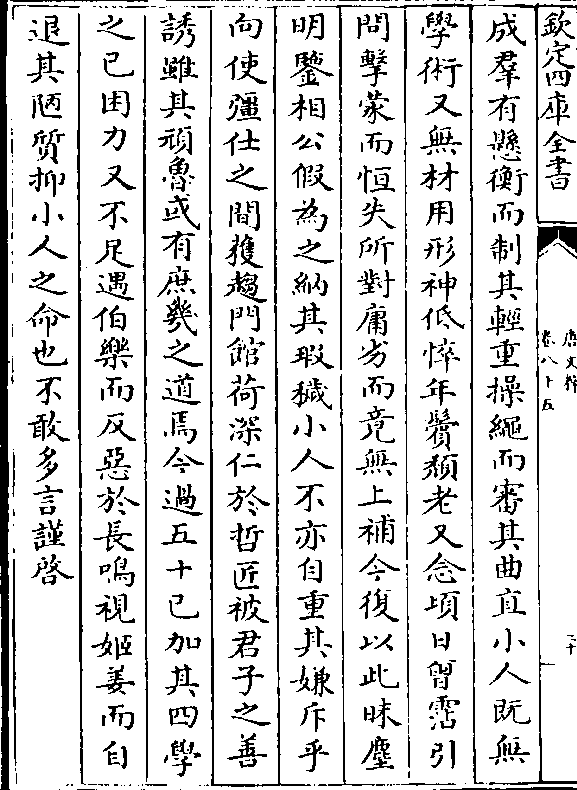 欽定四庫全書
唐文粹
卷八十五
二十
成羣有懸衡而制其輕重操繩而審其曲直小人既無
學術又無材用形神低悴年鬢頽老又念頃日曾霑引
問擊蒙而恒失所對庸劣而竟無上補今復以此昧塵
明鑒相公假為之納其瑕穢小人不亦自重其嫌斥乎
向使彊仕之間獲趨門館荷深仁於哲匠被君子之善
誘雖其頑魯或有庶幾之道焉今過五十已加其四學
之已困力又不足遇伯樂而反惡於長鳴視姬姜而自
退其陋質抑小人之命也不敢多言謹啓